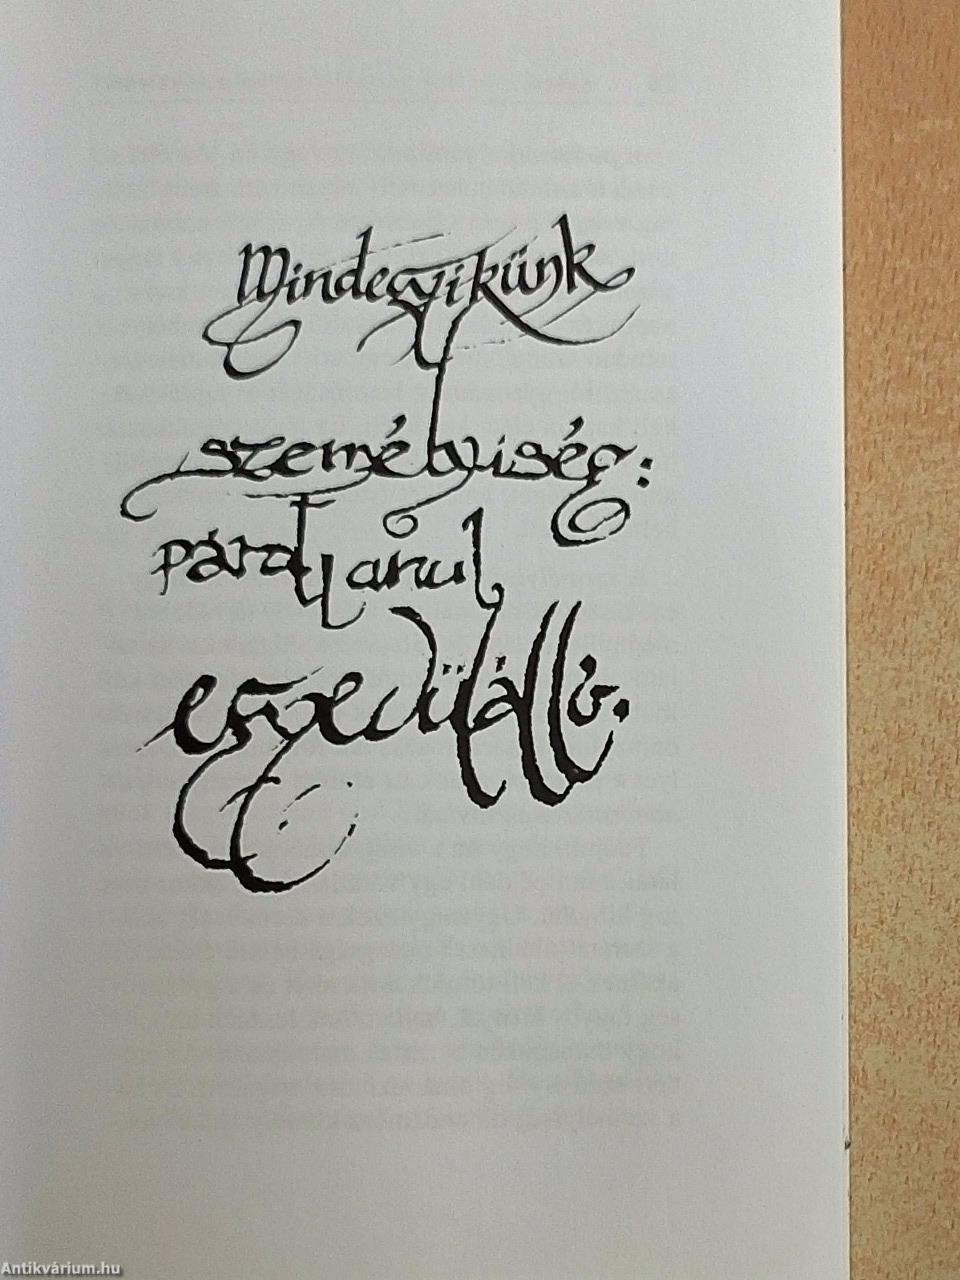 Mindegyikünk
személyiség:
páratlanul
egyedülálló.
Antikvárium.hu